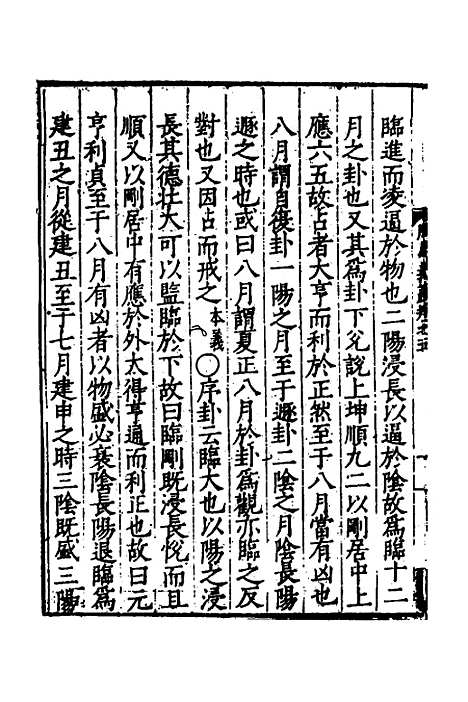 臨進而凌逼於物也二陽浸長以逼於陰故爲臨十二
月之卦也又其爲卦下兌說上坤順九二以剛居中上
應六五故占者大亨而利於正然至于八月當有凶也
八月謂自復卦一陽之月至于遯卦二陰之月陰長陽
遯之時也或曰八月謂夏正八月於卦爲觀亦臨之反
對也又因占而戒之本義○序卦云臨大也以陽之浸
長其德壮大可以監臨於下故曰臨剛既浸長悅而且
順又以剛居中有應於外大得亨通而利正也故曰元
亨利貞至于八月有凶者以物盛必衰陰長陽退臨爲
建丑之月從建丑至于七月建申之時三陰既盛三陽